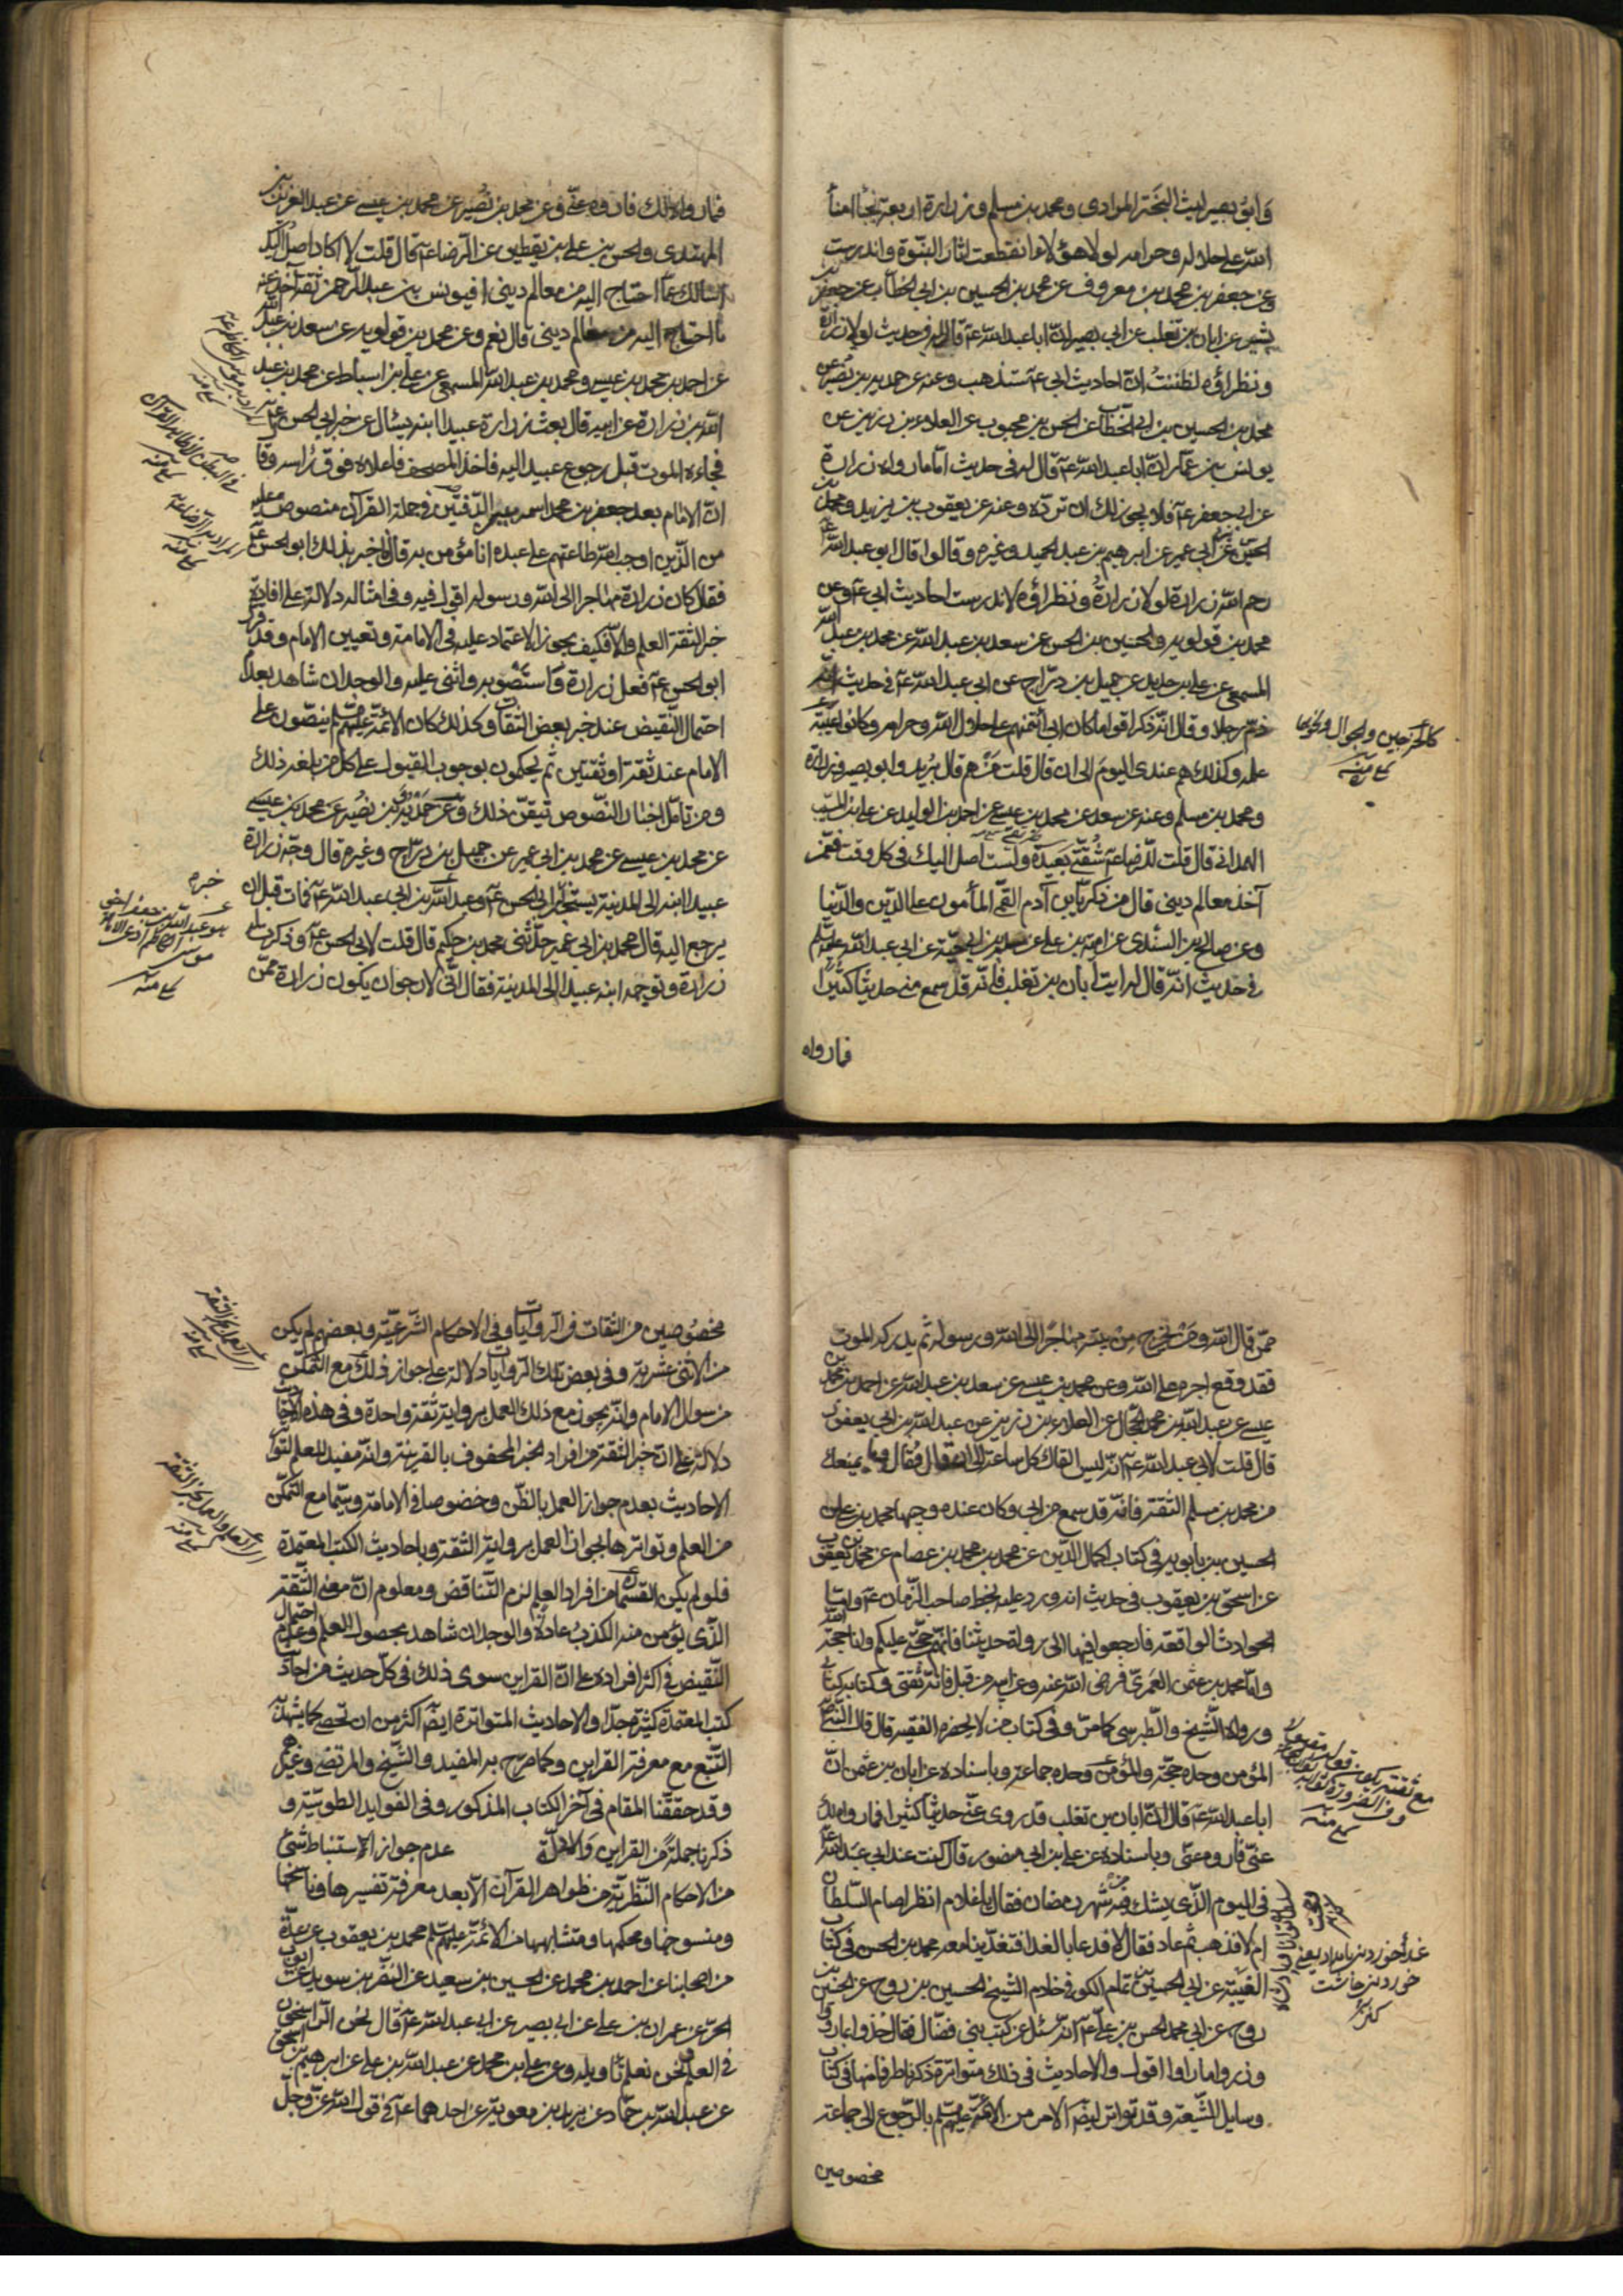 وابو بصير ليث البختري المرادي ومحمد بن مسلم وزرارة اربعة نجباء امناء
الله على حلاله وحرامه لولا هؤلاء انقطعت اثار النبوة واندرست
وعن جعفر بن محمد بن معروف عن محمد بن الحسين بن ابي الخطاب عن جعفر بن
بشير عن ابان بن تغلب عن ابي بصير انّ ابا عبد الله ع قال له في حديث لولا زرارة
ونظراؤه لظننتُ انّ احاديث ابي ع ستذهب وعنه عن حمدويه بن نصير عن
محمد بن الحسين بن ابي الخطاب عن الحسن بن محبوب عن العلاء بن رزين عن
يونس بن عمار انّ ابا عبد الله ع قال له في حديث امّا ما رواه زرارة
عن ابي جعفر ع فلا يجوز لك ان تردّه وعنه عن يعقوب بن يزيد ومحمد بن
الحسين عن ابن ابي عمير عن ابرهيم بن عبد الحميد وغيره وقالوا قال ابو عبد الله ع
رحم الله زرارة لولا زرارة ونظراؤه لاندرست احاديث ابي ع وعن
محمد بن قولويه والحسين بن الحسن عن سعد بن عبد الله عن محمد بن عبد الله
المسمعي عن علي بن حديد عن جميل بن درّاج عن ابي عبد الله ع في حديث انه
ذمّ رجلا وقال انّه ذكر اقواما كان ابي ائتمنهم على حلال الله وحرامه وكانوا عيبة
علمه وكذلك هم عندي اليوم الى ان قال قلت مَنْ هم قال بُريد وابو بصير وزرارة
ومحمد بن مسلم وعنه عن سعد عن محمد بن عيسى عن احمد بن الوليد عن علي بن المسيب
الهمداني قال قلت للرضا ع شُقّتي بَعيدة ولست اصل اليك في كل وقت فممّن
آخذ معالم ديني قال من زكريا بن آدم القمّي المأمون على الدّين والدّنيا
وعن صالح بن السندي عن امية بن علي عن مسلم بن ابي حيّة عن ابي عبد الله عليه السلم
في حديث انّه قال له ايت ابان بن تغلب فانّه قد سمع منّي حديثا كثيرًا
فما رواه
كالخرجين والجوال ونحوها
منه
فما رواه لك فاروه عنّي وعن محمد بن نُصير عن محمد بن عيسى عن عبد العزيز بن
المهتدي والحسن بن علي بن يقطين عن الرضا ع قال قلت لا اكاد اصل اليك
اسالك عمّا احتاج اليه من معالم ديني افيونس بن عبد الرحمن ثقة آخذ عنه
ما احتاج اليه من معالم ديني قال نعم وعن محمد بن قولويه عن سعد بن عبد الله
عن احمد بن محمد بن عيسى ومحمد بن عبد الله المسمعي عن علي بن اسباط عن محمد بن عبد
الله بن زرارة عن ابيه قال بعث زرارة عبيدا ابنه يسئال عن خبر ابي الحسن ع
فجاءه الموت قبل رجوع عبيد اليه فاخذ المصحف فاعلاه فوق رأسه وقال
انّ الامام بعد جعفر بن محمد اسمه بين الدّفتين في جملة القرآن منصوص عليه
من الّذين اوجب الله طاعتهم على عبده انا مؤمن به قال فاخبر بذلك ابو الحسن ع
فقال كان زرارة مهاجرا الى الله ورسوله اقول فيه وفي امثاله دلالة على افادة
خبر الثقة العلم والّا فكيف يجوز الاعتماد عليه في الامامة وتعيين الامام وقد قرر
ابو الحسن ع فعل زرارة واستصوبه واثنى عليه والوجدان شاهد بعدم
احتمال النقيض عند خبر بعض الثقات وكذلك كان الائمة عليهم السلم ينصّون على
الامام عند ثقة او ثقتين ثم يحكمون بوجوب القبول على كل من بلغه ذلك
ومن تامّل اخبار النصوص تيقّن ذلك وعن حمدويه بن نُصير عن محمد بن عيسى
عن محمد بن عيسى عن محمد بن ابي عمير عن جميل بن درّاج وغيره قال وجّه زرارة
عبيدا ابنه الى المدينة يستخبر ابي الحسن ع وعبد الله بن ابي عبد الله ع فمات قبل ان
يرجع اليه قال محمد بن ابي عمير حدّثني محمد بن حكيم قال قلت لابي الحسن ع وذكرت له
زرارة وتوجيه ابنه عبيدا الى المدينة فقال انّي لارجو ان يكون زرارة ممّن
خبره
هو عبد الله بن جعفر اخي
موسى الكاظم ادعى الامامة
منه
ممّن قال الله ومَن يخرج مِنْ بيته مهاجرًا الى الله ورسوله ثم يدركه الموت
فقد وقع اجره على الله وعن محمد بن عيسى عن سعد بن عبد الله عن احمد بن محمد بن
عيسى عن عبد الله بن محمد الحجّال عن العلاء بن رزين عن عبد الله بن ابي يعفور
قال قلت لابي عبد الله ع انّه ليس القاك كل ساعة الى ان قال فقال وما يمنعك
من محمد بن مسلم الثقة فانّه قد سمع من ابي وكان عنده وجيها محمد بن علي بن
الحسين بن بابويه في كتاب اكمال الدّين عن محمد بن محمد بن عصام عن محمد بن يعقوب
عن اسحق بن يعقوب في حديث انه ورد عليه بخط صاحب الزّمان ع وامّا
الحوادث الواقعة فارجعوا فيها الى رواة حديثنا فانّهم حجّتي عليكم وانا حجة الله
وامّا محمد بن عثمن العَمري فرضي الله عنه وعن ابيه من قبل فانّه ثقتي وكتابه كتابي
ورواه الشّيخ والطّبرسي كما مرّ وفي كتاب من لا يحضره الفقيه قال قال النّبي ص
المؤمن وحده حجّة والمؤمن وحده جماعة وباسناده عن ابان بن عثمن انّ
ابا عبد الله ع قال له انّ ابان بن تغلب قد روى عنّي حديثا كثيرا فما رواه لك
عنّي فاروه عنّي وباسناده عن علي بن ابي منصور قال كنت عند ابي عبد الله ع
في اليوم الّذي يشك فيه من شهر رمضان فقال يا غلام انظر اصام السّلطان
ام لا فذهب ثم عاد فقال لا فدعا بالغدا فتغدّينا معه محمد بن الحسن في كتاب
الغَيبة عن ابي الحسين بن تمام الكوفي خادم الشيخ الحسين بن روح عن الحسين بن
روح عن ابي محمد الحسن بن علي ع انّه سُئل عن كتب بني فضّال فقال خُذوا بما رووا
وذروا ما راوا اقول والاحاديث في ذلك متواترة ذكرنا طرفا منها في كتاب
وسايل الشّيعة وقد تواتر ايضا الامر من الائمة عليهم السلم بالرّجوع الى جماعة
مخصوصين
غدا خوردن بامداد يعني
خوردن چاشت
كنز
مخصُوصين من الثقات في الروايات وفي الاحكام الشّرعيّة وبعضهم لم يكن
من الاثنى عشرية وفي بعض تلك الرّوايات دلالة على جواز ذلك مع التّمكّن
من سوال الامام وانّه يجوز مع ذلك العمل برواية ثقة واحدة وفي هذه الاحاديث
دلالة على انّ خبر الثقة من افراد الخبر المحفوف بالقرينة وانّه مفيد للعلم لتواتر
الاحاديث بعدم جواز العمل بالظّن وخصوصا في الامامة وسيّما مع التّمكّن
من العلم وتواترها بجواز العمل برواية الثّقة وباحاديث الكتب المعتمدة
فلو لم يكن القسمان من افراد العلم لزم التّناقض ومعلوم انّ معنى الثّقة
الّذي يؤمن منه الكذبُ عادة والوجدان شاهد بحصول العلم وعدم احتمال
النّقيض في اكثر افراده على انّ القراين سوى ذلك في كلّ حديث من احاديث
كتب المعتمدة كثيرة جدّا والاحاديث المتواترة ايضا اكثر من ان تحصى كما يشهد به
التّتبع مع معرفة القراين وكما صرّح به المفيد والشّيخ والمرتضى وغيرهم
وقد حقّقنا المقام في آخر الكتاب المذكور وفي الفوايد الطوسيّة و
ذكرنا جملةً من القراين والادلّة عدم جواز الاستنباط شئ
من الاحكام النّظريّة من ظواهر القرآن الّا بعد معرفة تفسيرها وناسخها
ومنسوخها ومحكمها ومتشابهها من الائمّة عليهم السلم محمد بن يعقوب عن عدّة
من اصحابنا عن احمد بن محمد عن الحسين بن سعيد عن النّضر بن سويد عن ايوب بن
الحرّ عن عمران بن علي عن ابي بصير عن ابي عبد الله ع قال نحن الرّاسخون
في العلم ونحن نعلم تأويله وعن علي بن محمد عن عبد الله بن علي عن ابرهيم بن اسحق
عن عبد الله بن حمّاد عن بريد بن معوية عن احدهما ع في قول الله عزّ وجلّ